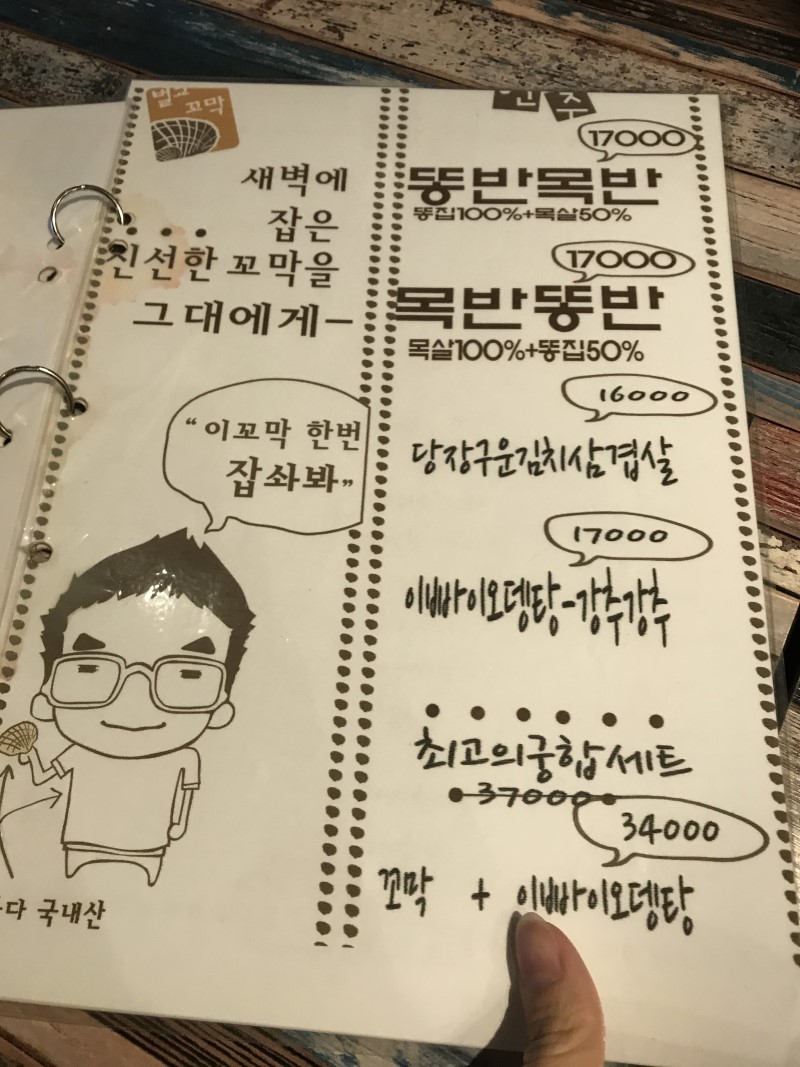 벌교
꼬막
새벽에
잡은
신선한 꼬막을
그대에게-
"이꼬막 한번
잡솨봐"
다 국내산
안주
17000
똥반목반
똥집100%+목살50%
17000
목반똥반
목살100%+똥집50%
16000
당장구운김치삼겹살
17000
이빠이오뎅탕-강추강추
최고의궁합세트
37000
34000
꼬막 + 이빠이오뎅탕